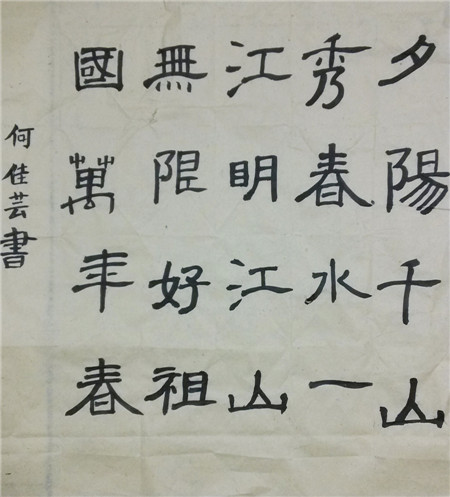 夕陽千山
秀春水一
江明江山
無限好祖
國萬年春
何佳芸書